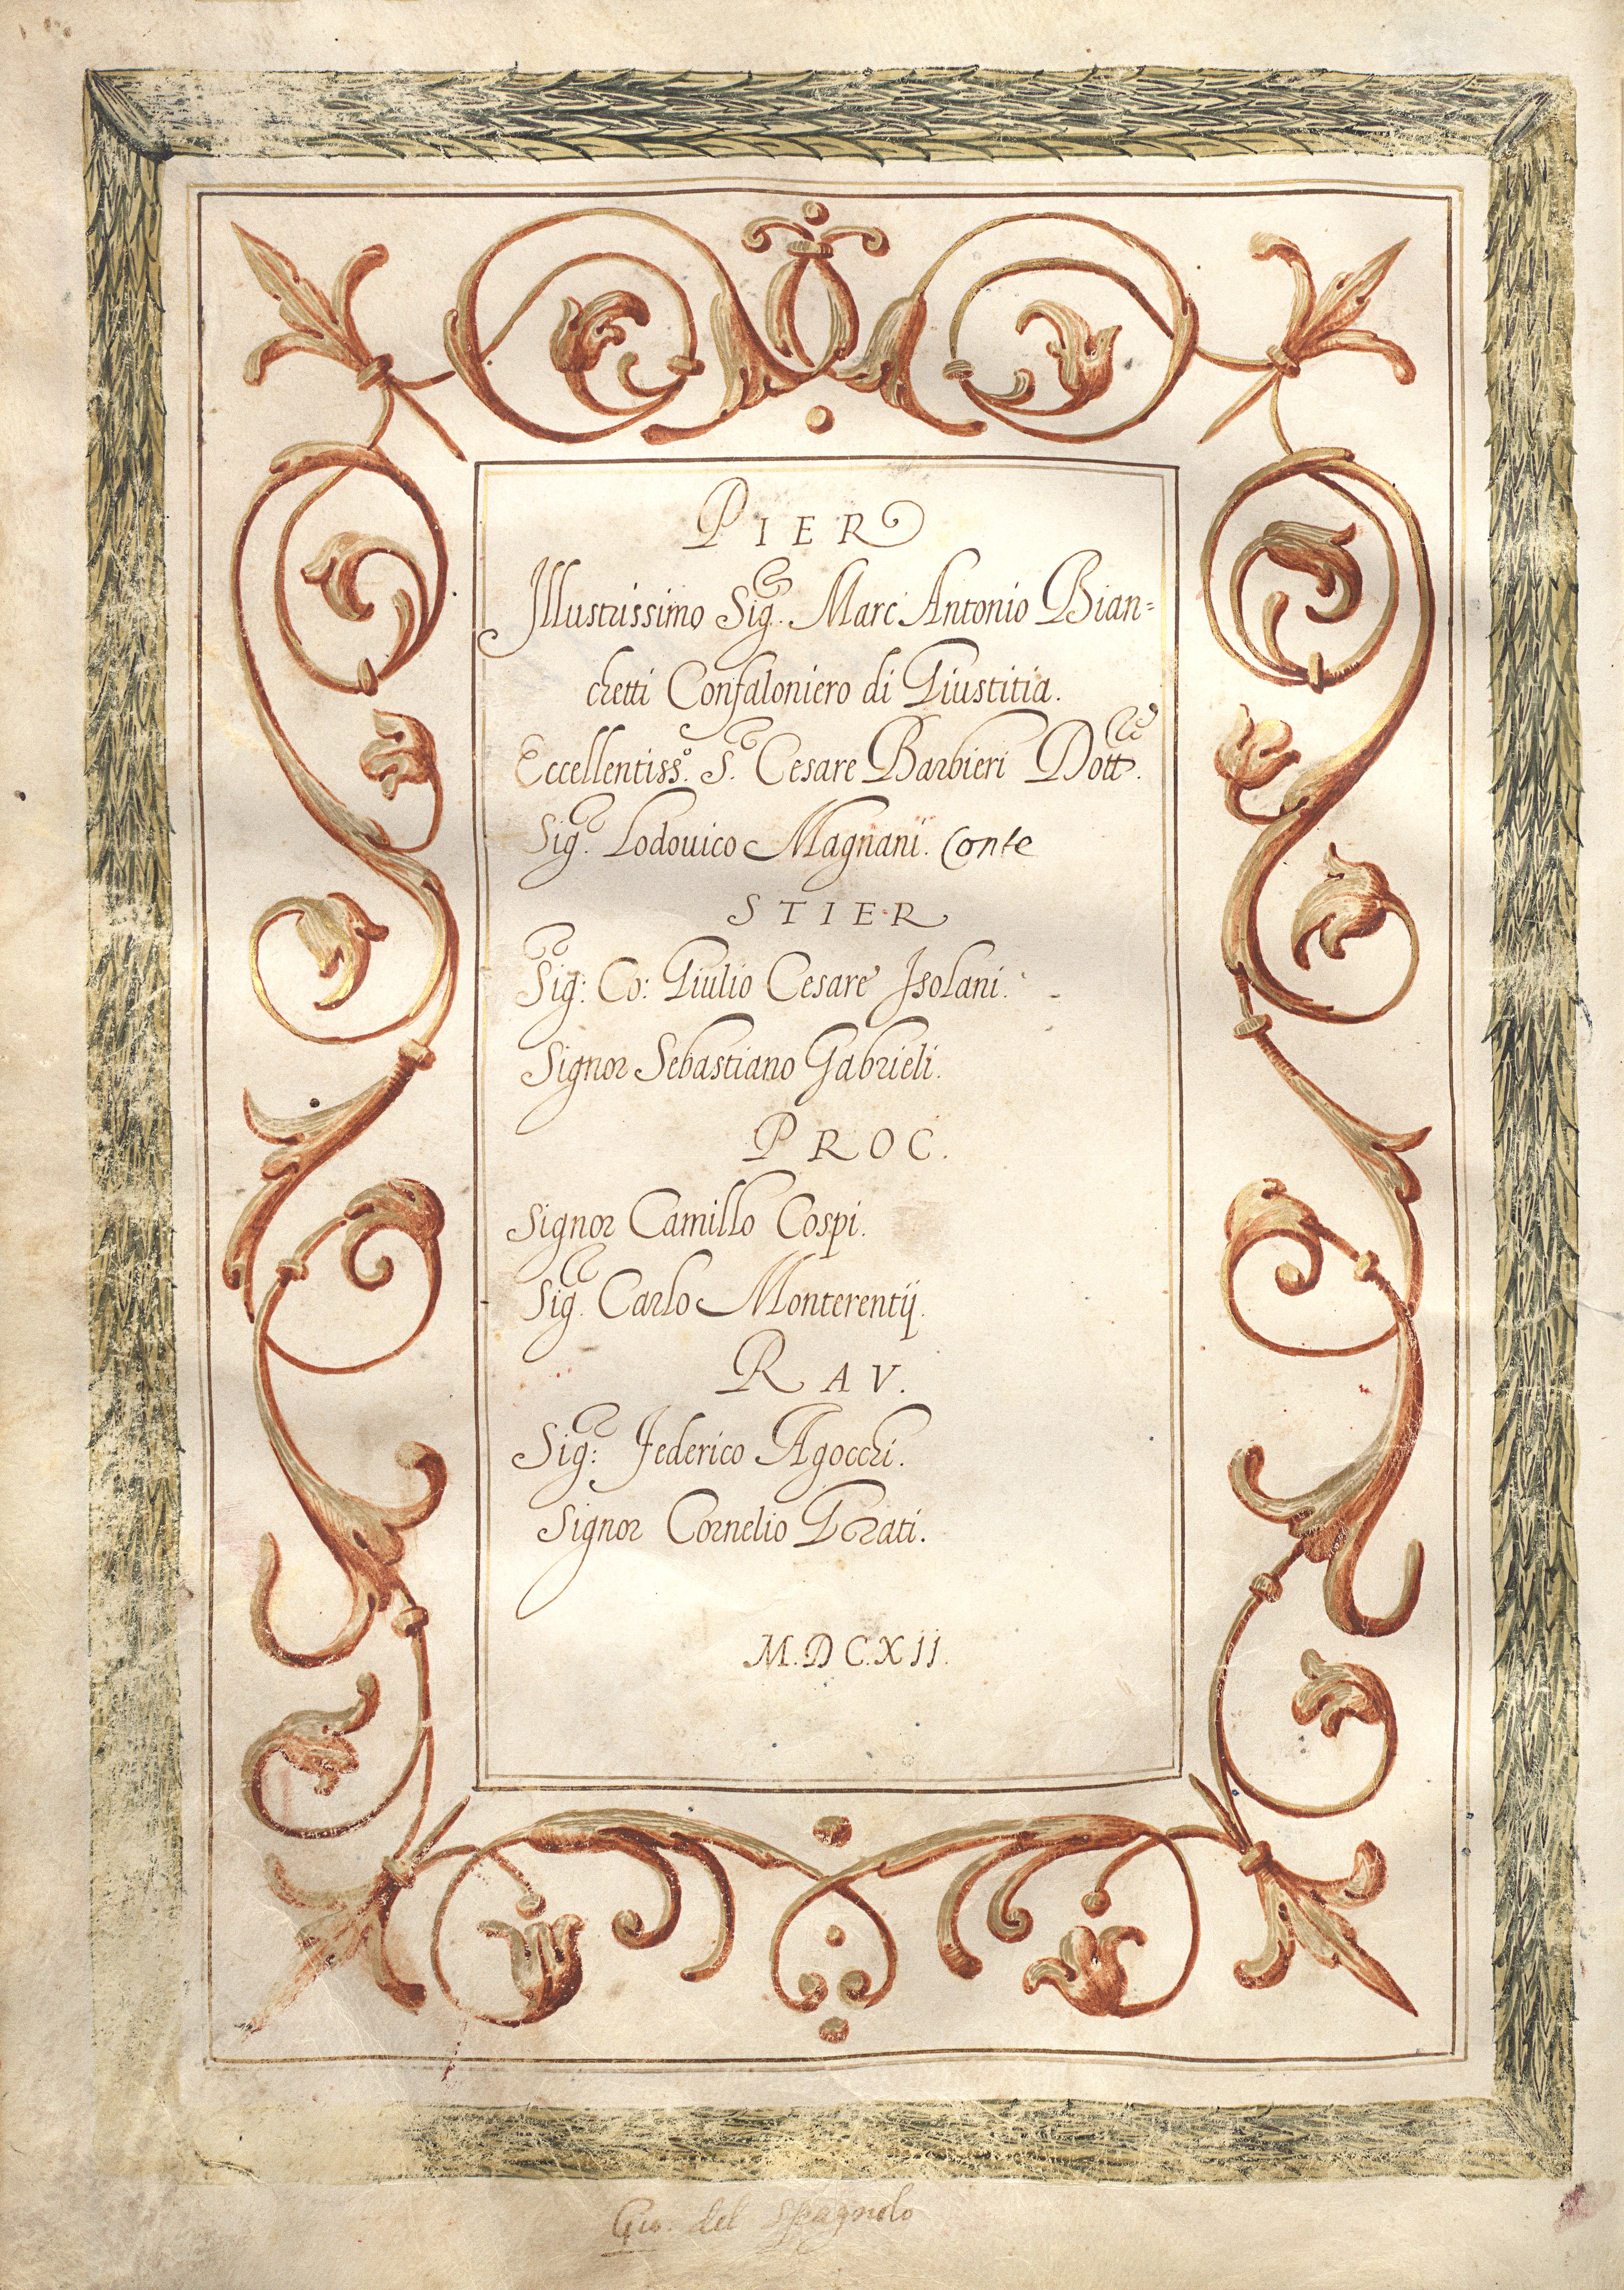 PIER
Illustrissimo Sig. Marc' Antonio Bian=
chetti Confaloniero di Giustitia.
Eccellentiss.º S. Cesare Barbieri Dott.
Sig. Lodouico Magnani. Conte
STIER
Sig: Co: Giulio Cesare Isolani.
Signor Sebastiano Gabrieli.
PROC.
Signor Camillo Cospi.
Sig. Carlo Monterentij.
RAV.
Sig: Federico Agocchi.
Signor Cornelio Grati.
M.D C.XII.
Gio. del Spagnolo